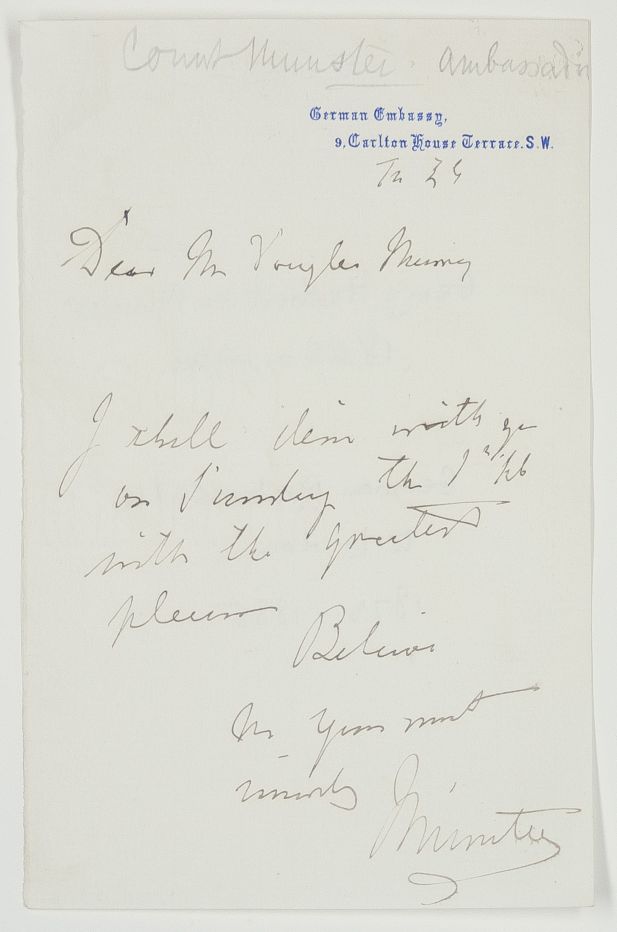 Count Munster. Ambassador
German Embassy,
9, Carlton House Terrace. S.W.
Dear Mr Douglas Murray
I shall dine with you
on Sunday the 1st Feb
with the greatest
pleasure
Believe
me yours most
sincerely
Münster